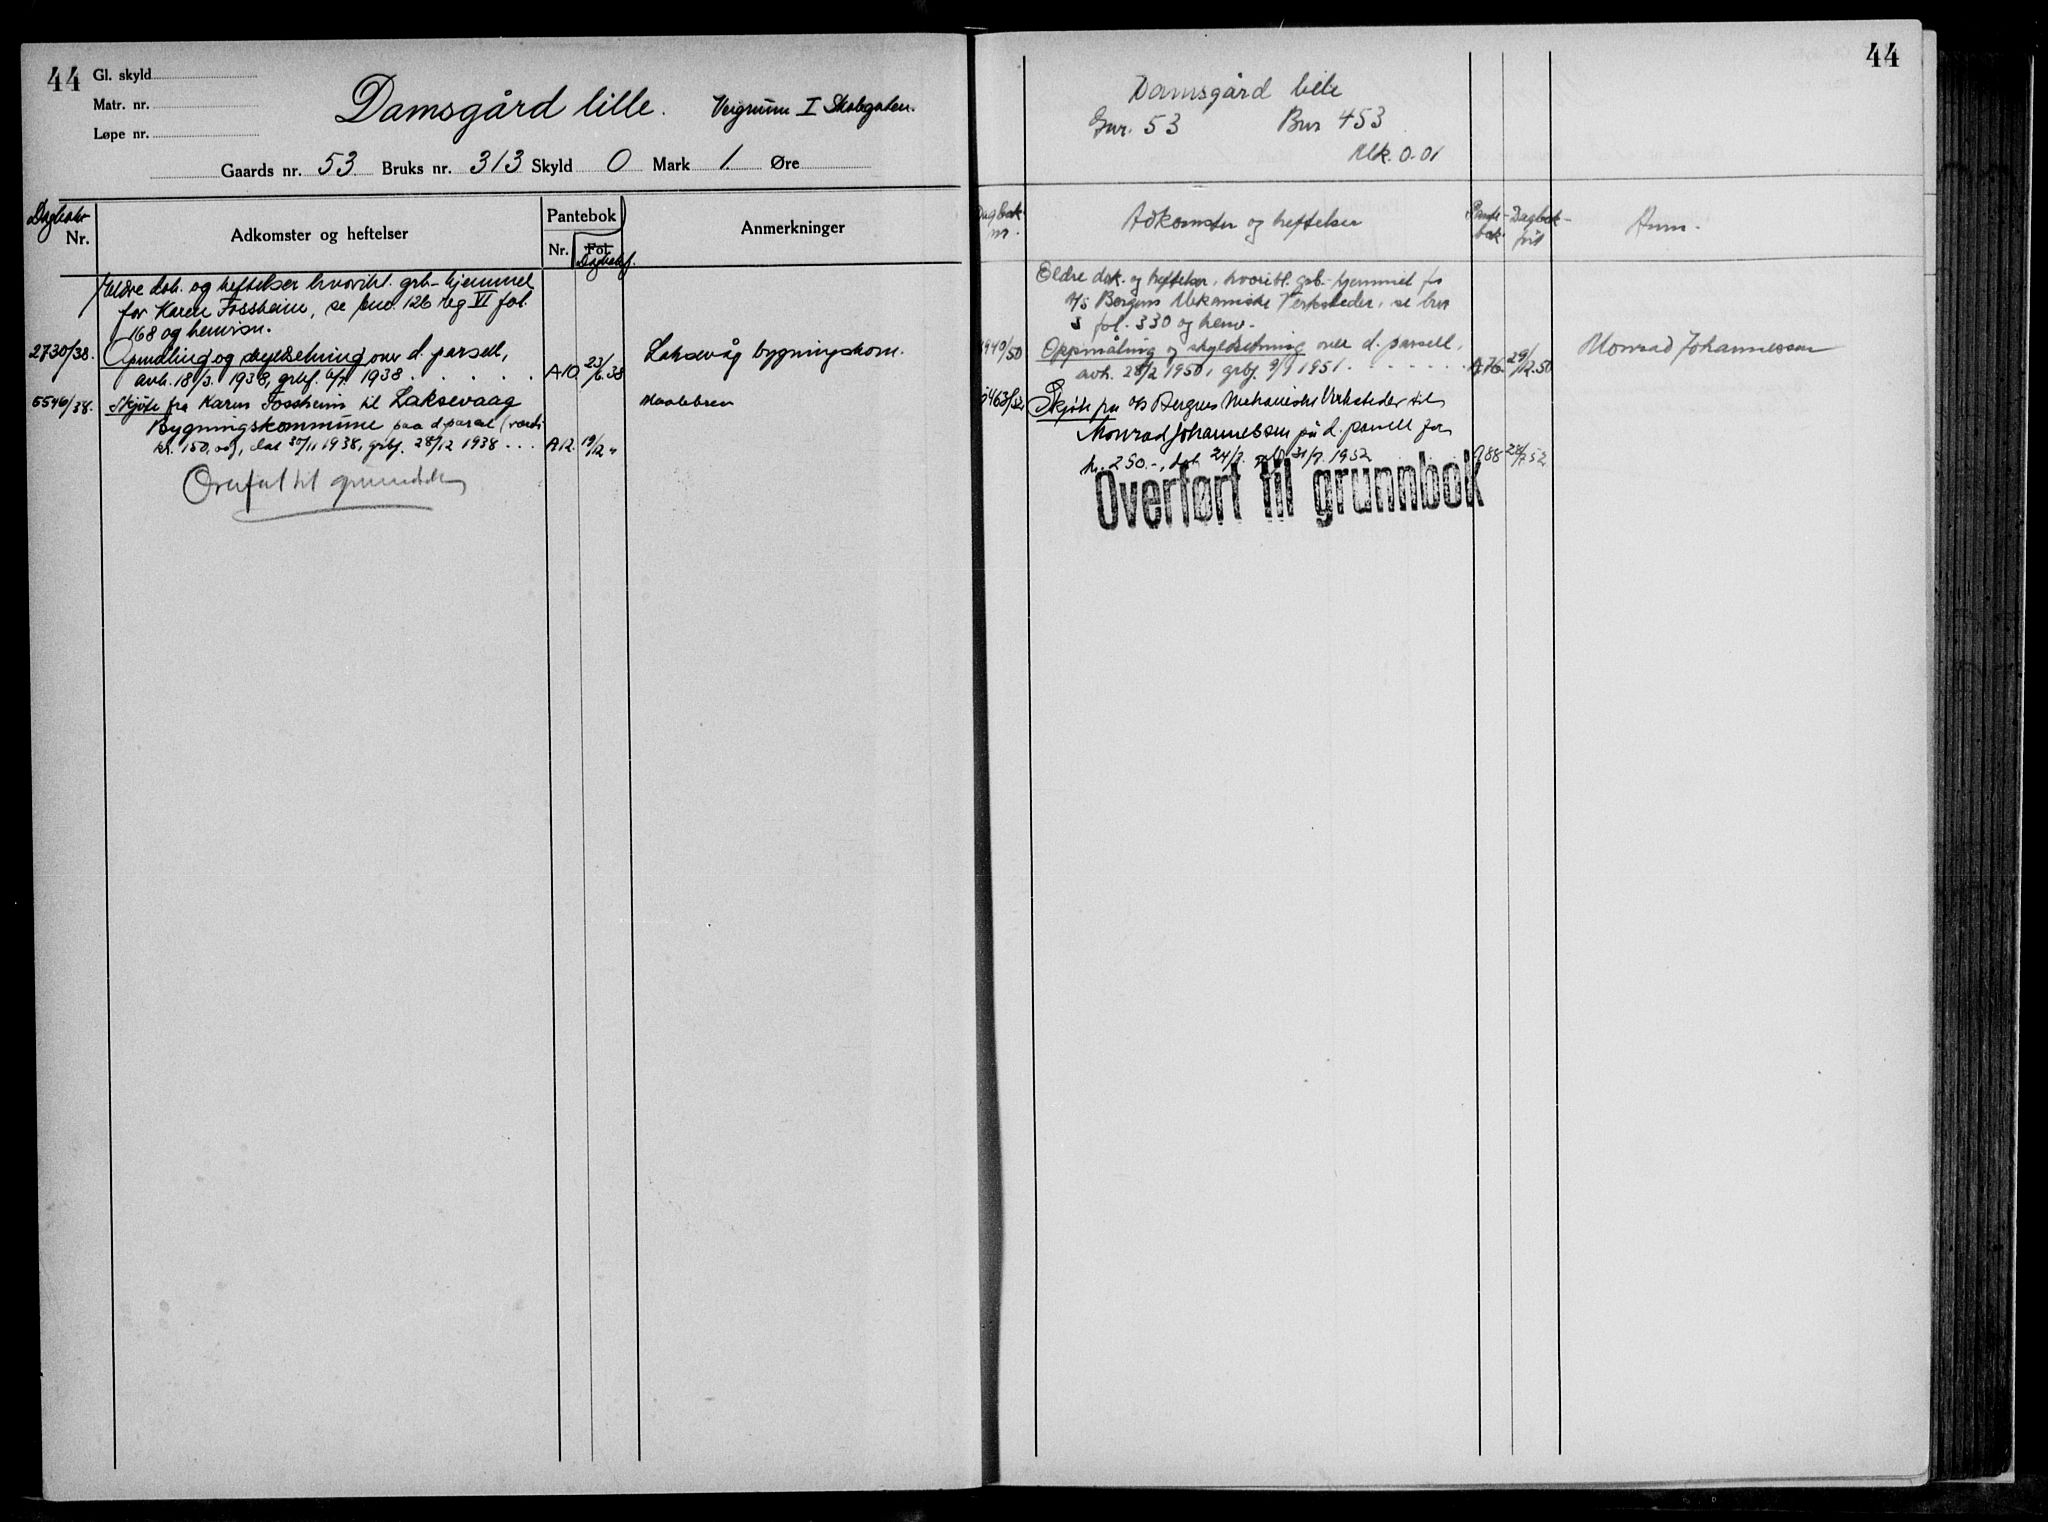 44
Gl. skyld
Matr. nr.
Løpe nr.
Damsgård lille. Veigrunn I Skolegaten.
Gaards nr. 53 Bruks nr. 313 Skyld 0 Mark 1 Øre
Dagboks-
Nr.
Adkomster og heftelser
Pantebok
Nr. Fol.
Dagbokf.
Anmerkninger
Eldre dok. og heftelser hvoribl. grb-hjemmel
for Karen Fossheim, se bnr. 126 reg VI fol.
168 og henvisn.
2730/38. Opmåling og skyldsetning over d. parsell,
avh. 18/3. 1938, grbf. 6/7. 1938 . . . . . A10 23/6.38 Laksevåg bygningskom.
5546/38. Skjøte fra Karen Fossheim til Laksevaag Maalebrev
Bygningskommune paa d. parsel (verdi
kr. 150, dat 30/11 1938, grbf. 28/12 1938 . . . A12. 19/12 "
Overført til grunnboken
44
Damsgård lille
Gnr. 53 Bnr 453
Mk. 0.01
Dagbok
nr.
Adkomster og heftelser
Pante-
bok
Dagbok-
ført
Anm.
Eldre dok. og heftelser, hvoribl. grb.-hjemmel for
A/S Bergens Mekaniske Verksteder, se bnr
3 fol. 330 og henv.
8940/50 Oppmåling og skyldsetning over d. parsell, Monrad Johannessen
avh. 28/2 1950, grbf. 9/1 1951 . . . . . . A 76 29/12.50
5463/52 Skjøte fra A/S Bergens Mekaniske Verksteder til
Monrad Johannessen på d. parsell for
kr. 250.-, dat. 24/7. grbf. 31/7. 1952 A88 28/7 52
Overført til grunnbok